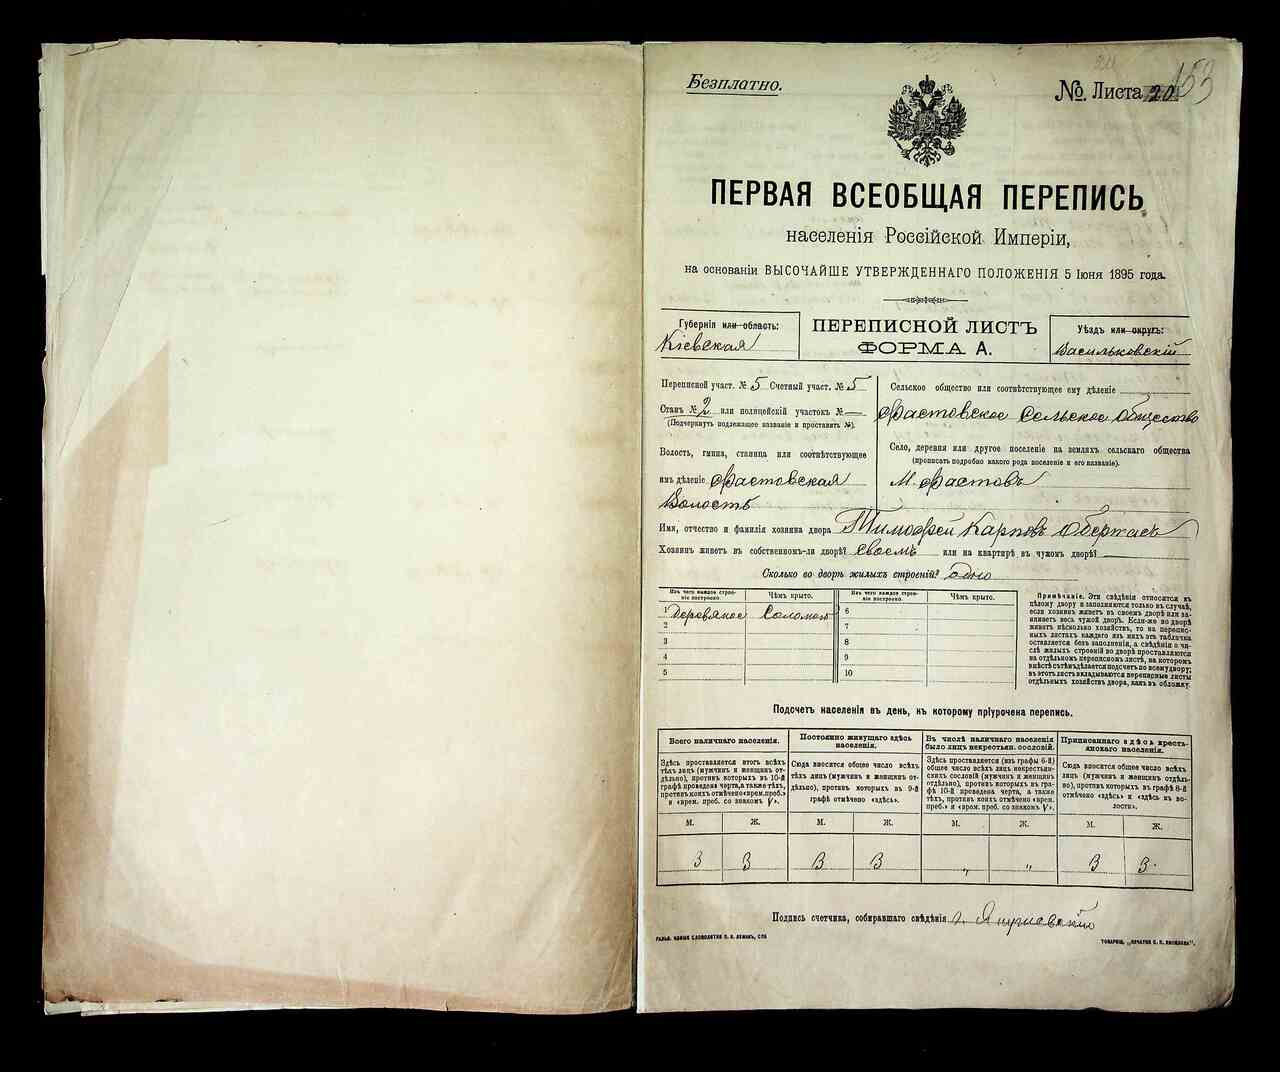 Безплатно.
№ Листа 20
153
ПЕРВАЯ ВСЕОБЩАЯ ПЕРЕПИСЬ
населенія Россійской Имперіи,
на основаніи ВЫСОЧАЙШЕ УТВЕРЖДЕННАГО ПОЛОЖЕНІЯ 5 Іюня 1895 года.
Губернія или область:
Кіевская
ПЕРЕПИСНОЙ ЛИСТЪ
ФОРМА А.
Уѣздъ или округъ:
Васильковскій
Переписной участ. № 5 Счетный участ. № 5
Станъ № 2 или полицейскій участокъ № —
(Подчеркнуть подлежащее названіе и проставить №).
Волость, гмина, станица или соотвѣтствующее
имъ дѣленіе Фастовская
Волость
Сельское общество или соотвѣтствующее ему дѣленіе
Фастовское Сельское Общество
Село, деревня или другое поселеніе на земляхъ сельскаго общества
(прописать подробно какого рода поселеніе и его названіе).
М. Фастовъ
Имя, отчество и фамилія хозяина двора Тимофей Карповъ Обертасъ
Хозяинъ живетъ въ собственномъ-ли дворѣ? своемъ или на квартирѣ въ чужомъ дворѣ?
Сколько во дворѣ жилыхъ строеній? одно
Изъ чего каждое строеніе построено. Чѣмъ крыто. Изъ чего каждое строеніе построено. Чѣмъ крыто.
1 Деревяное Соломой 6
2 7
3 8
4 9
5 10
Примѣчаніе. Эти свѣдѣнія относятся къ
цѣлому двору и заполняются только въ случаѣ,
если хозяинъ живетъ въ своемъ дворѣ или занимаетъ весь чужой дворъ. Если-же во дворѣ
живетъ нѣсколько хозяйствъ, то на переписныхъ листахъ каждаго изъ нихъ эта табличка
оставляется безъ заполненія, а свѣдѣнія о числѣ жилыхъ строеній во дворѣ проставляются
на отдѣльномъ переписномъ листѣ, на которомъ
вмѣстѣ съ тѣмъ дѣлается подсчетъ по всему двору;
въ этотъ листъ вкладываются переписные листы
отдѣльныхъ хозяйствъ двора, какъ въ обложку.
Подсчетъ населенія въ день, къ которому пріурочена перепись.
Всего наличнаго населенія.
Здѣсь проставляется итогъ всѣхъ
тѣхъ лицъ (мужчинъ и женщинъ отдѣльно), противъ которыхъ въ 10-й
графѣ проведена черта, а также тѣхъ,
противъ коихъ отмѣчено «врем. проб.»
и «врем. преб. со знакомъ V».
Постоянно живущаго здѣсь
населенія.
Сюда вносится общее число всѣхъ
тѣхъ лицъ (мужчинъ и женщинъ отдѣльно), противъ которыхъ въ 9-й
графѣ отмѣчено «здѣсь».
Въ числѣ наличнаго населенія
было лицъ некрестьян. сословій.
Здѣсь проставляется (изъ графы 6-й)
общее число всѣхъ лицъ некрестьянскихъ сословій (мужчинъ и женщинъ
отдѣльно), противъ которыхъ въ графѣ 10-й проведена черта, а также
тѣхъ, противъ коихъ отмѣчено «врем.
преб.» и «врем. преб. со знакомъ V».
Приписаннаго здѣсь крестьянскаго населенія.
Сюда вносится общее число всѣхъ
лицъ (мужчинъ и женщинъ отдѣльно), противъ которыхъ въ графѣ 8-й
отмѣчено «здѣсь» и «здѣсь въ волости».
М. Ж. М. Ж. М. Ж. М. Ж.
3 3 3 3 „ „ 3 3
Подпись счетчика, собиравшаго свѣдѣнія